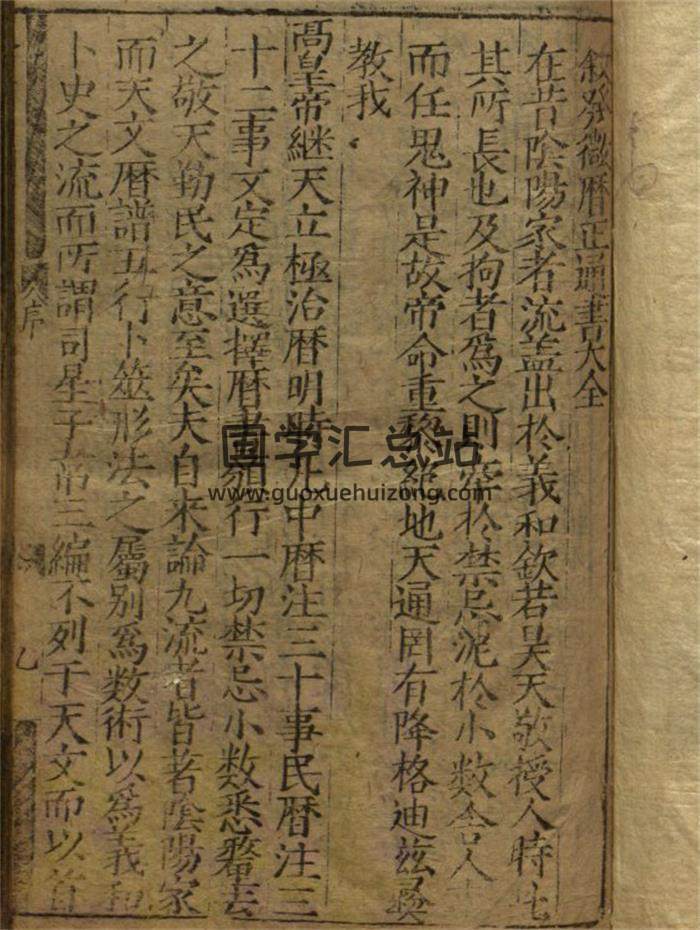 叙發微曆正通書大全
在昔陰陽家者流盖出於羲和欽若昊天敬授人時此
其所長也及拘者為之則牽於禁忌泥於小数舍人
而任鬼神是故帝命重黎絕地天通罔有降格迪茲
我教
高皇帝継天立極治曆明時凡中曆注三十事民曆注三
十二事文定為選擇曆書頒行一切禁忌小数悉釐去
之敬天勤民之意至矣夫自来論九流者皆若陰陽家
而天文曆譜五行卜筮形法之屬别為数術以為羲和
卜史之流而所謂司星子韋三編不列于天文而以首
序
乙
国学汇总站
www.guoxuehuizong.com